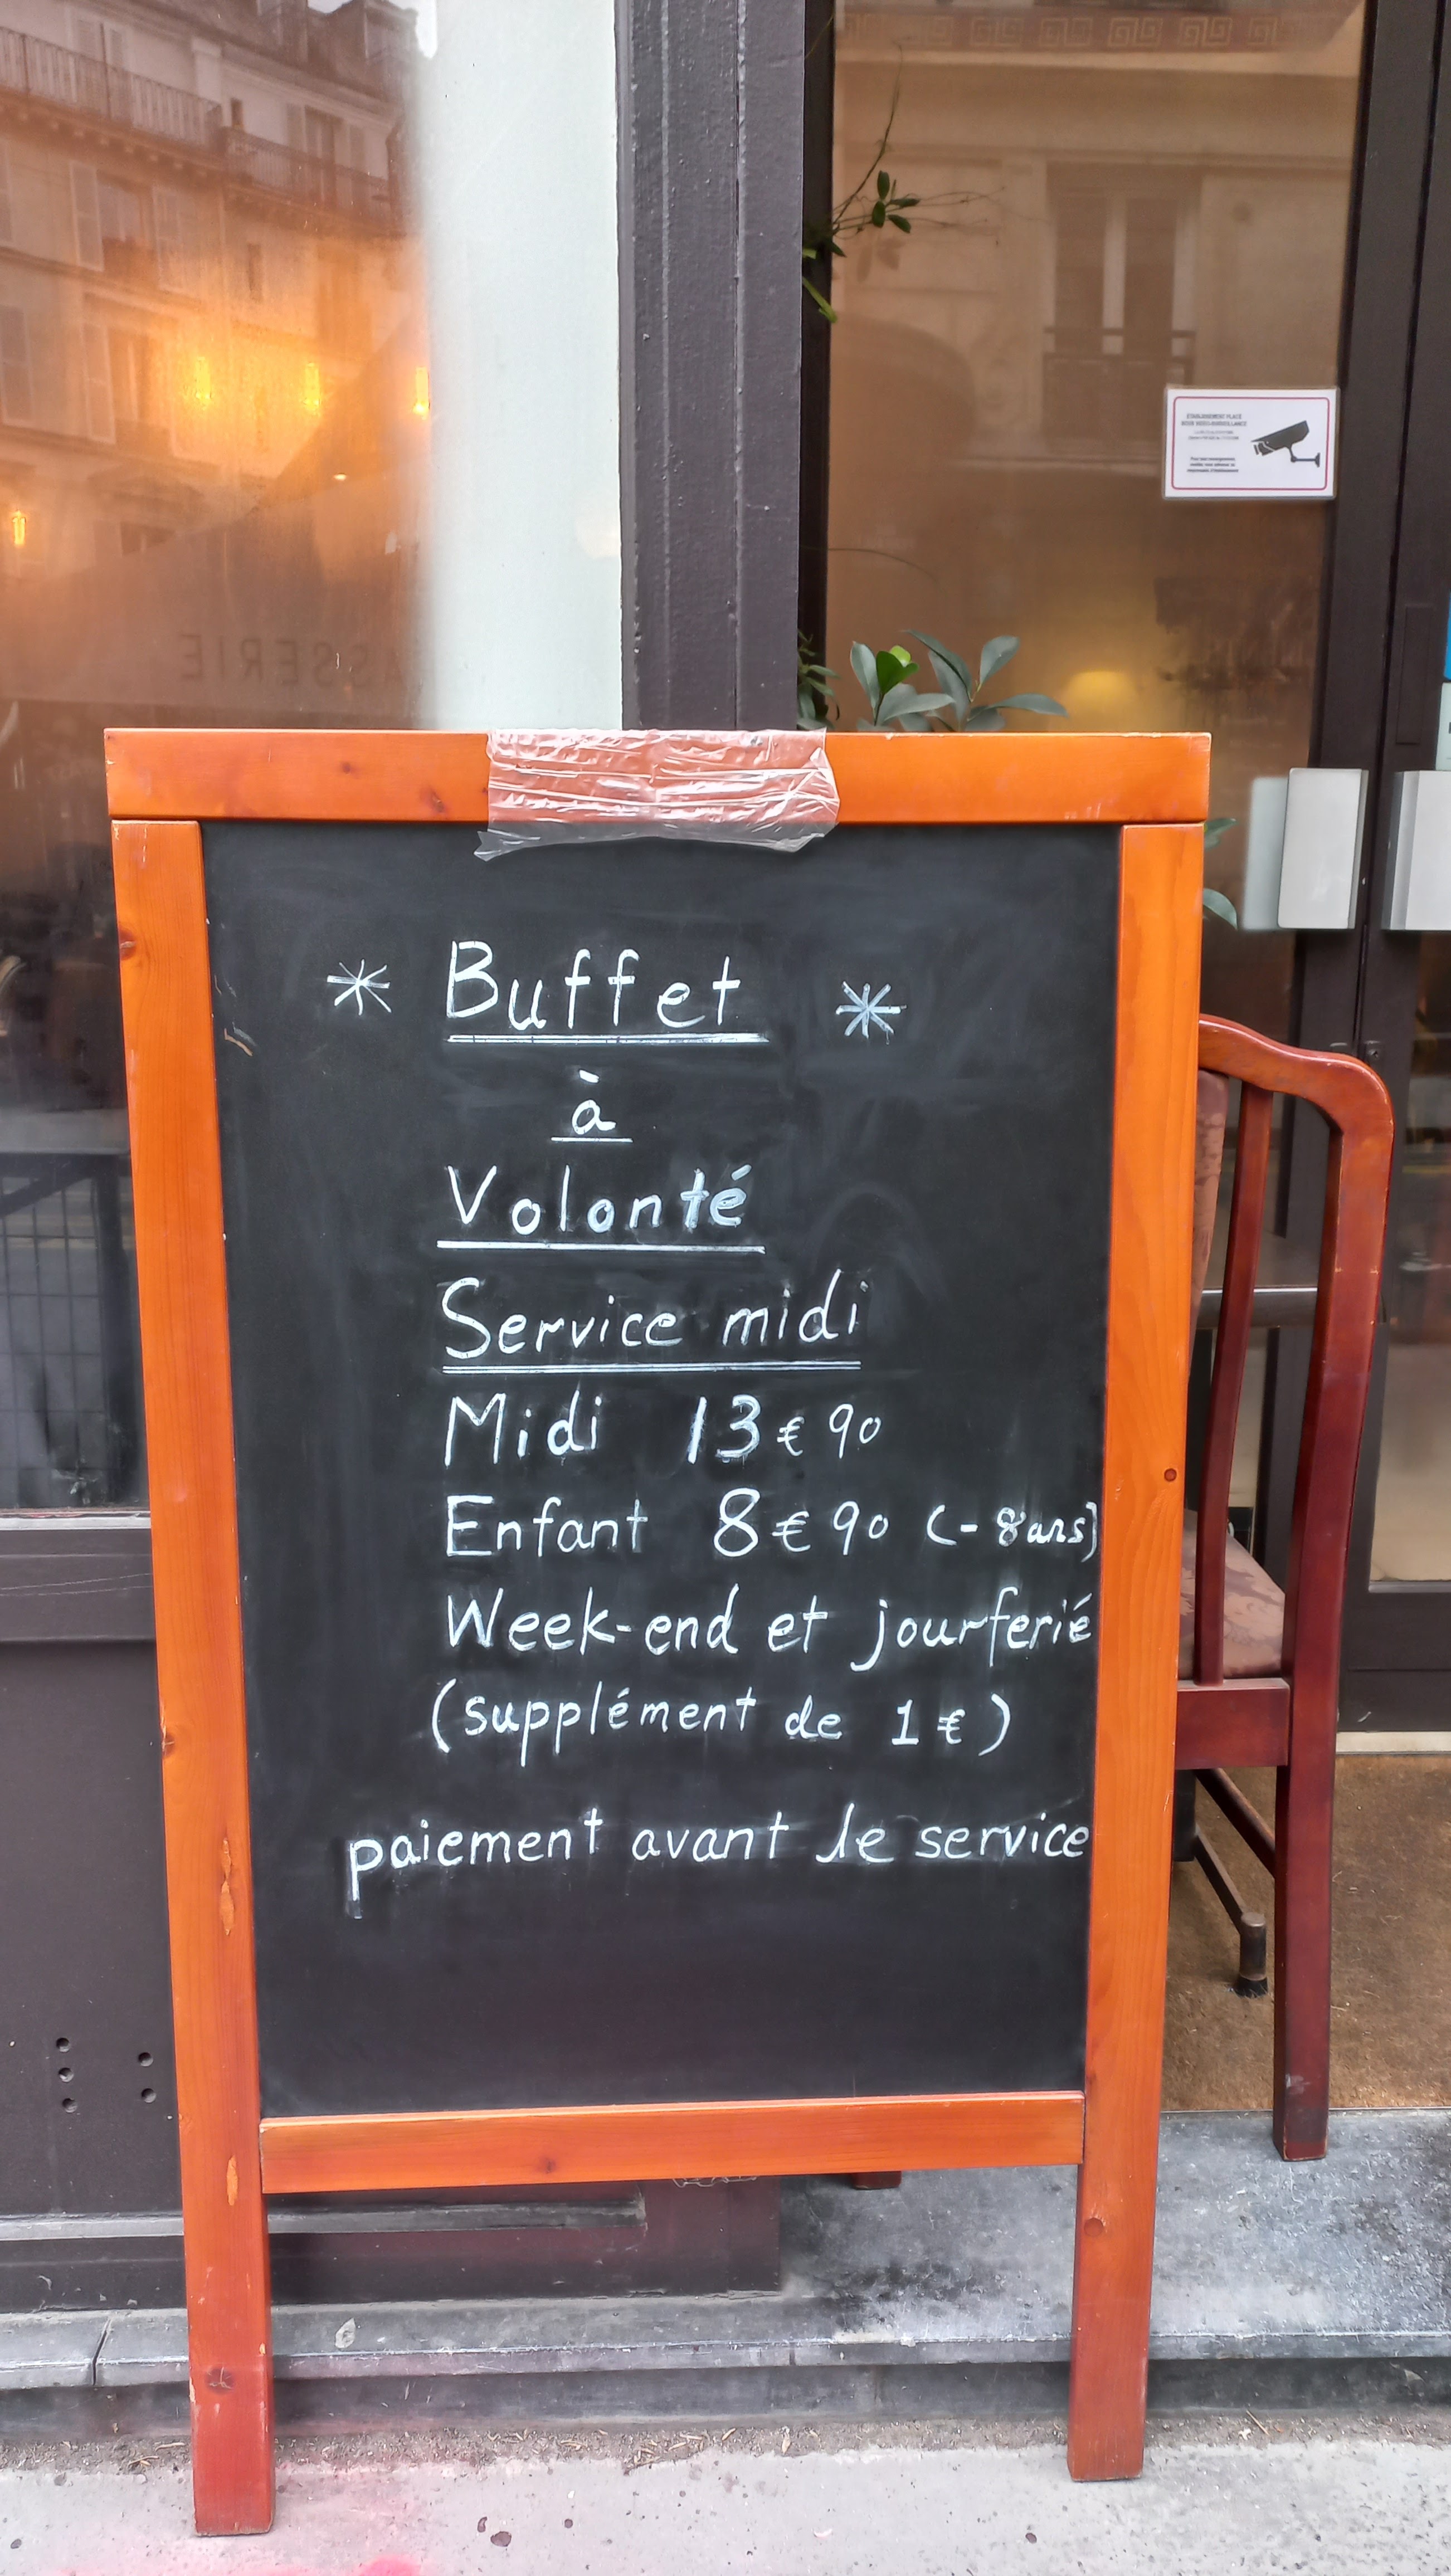 ETABLISSEMENT PLACÉ
SOUS VIDÉO-SURVEILLANCE
* Buffet *
à
Volonté
Service midi
Midi 13€90
Enfant 8€90 (-8ans)
Week-end et jourferié
(supplément de 1€)
paiement avant le service